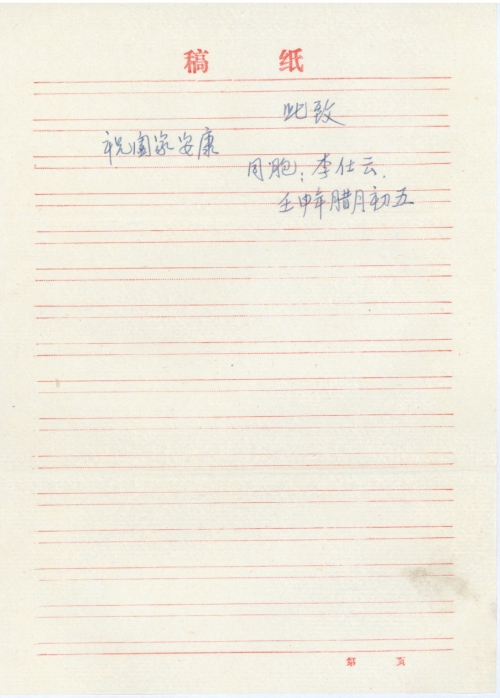 稿 纸
此致
祝阖家安康
同胞：李仕云.
壬申年腊月初五
第 页